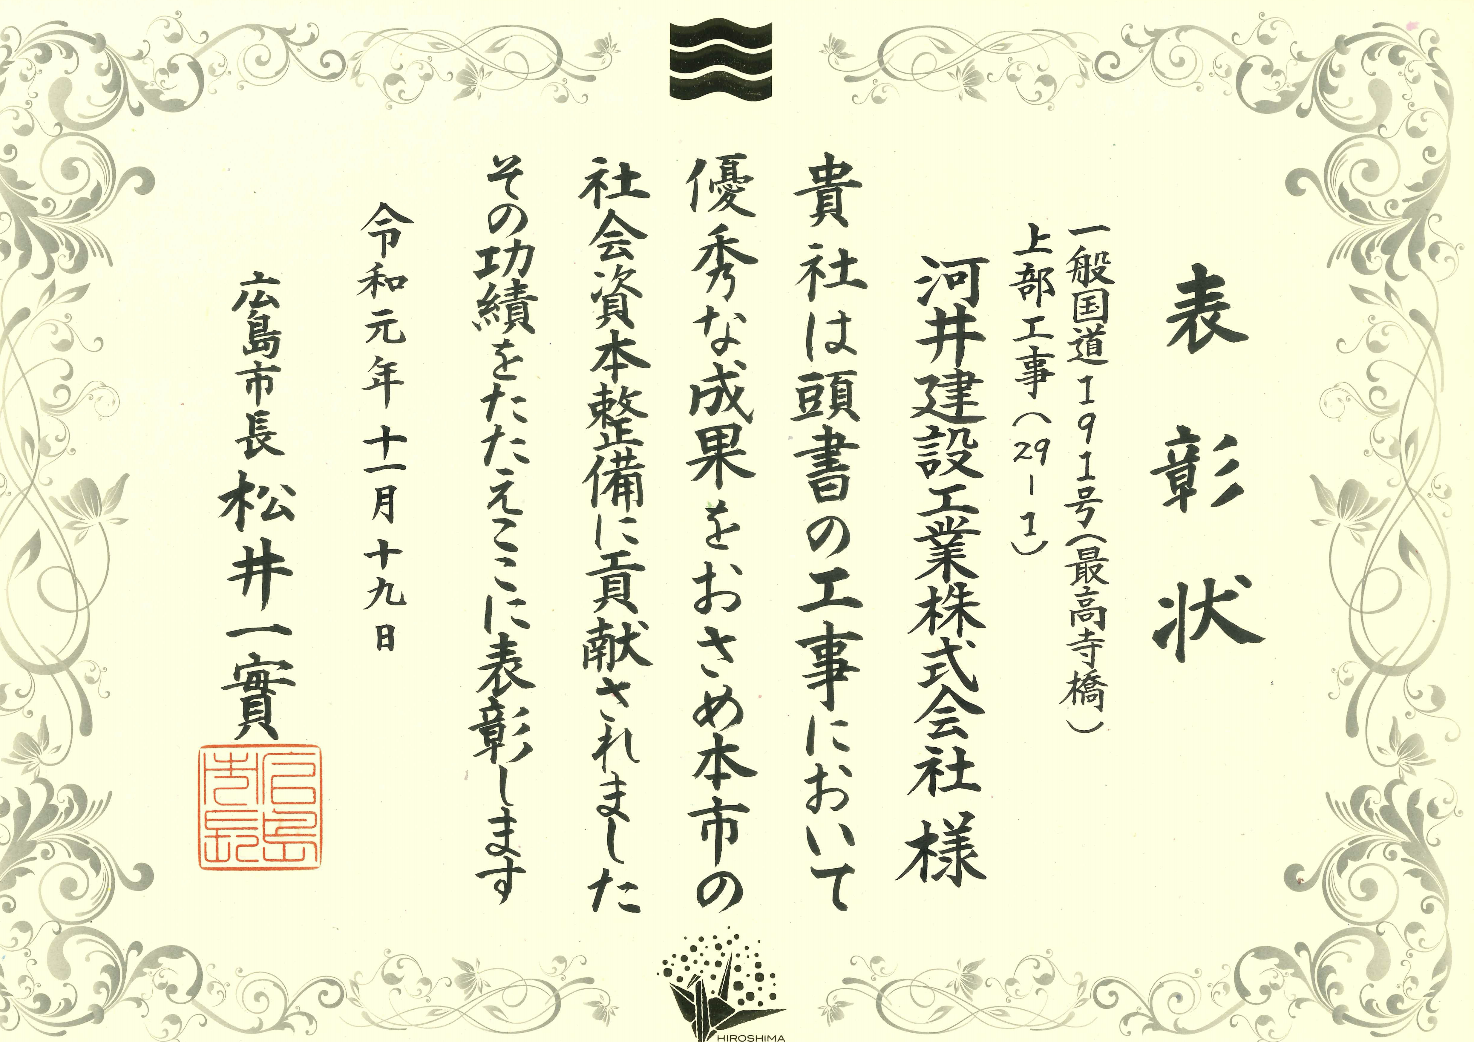 表彰状
一般国道191号(最高寺橋)
上部工事(29-1)
河井建設工業株式会社 様
貴社は頭書の工事において
優秀な成果をおさめ本市の
社会資本整備に貢献されました
その功績をたたえここに表彰します
令和元年十一月十九日
広島市長 松井一實
広島市長
HIROSHIMA